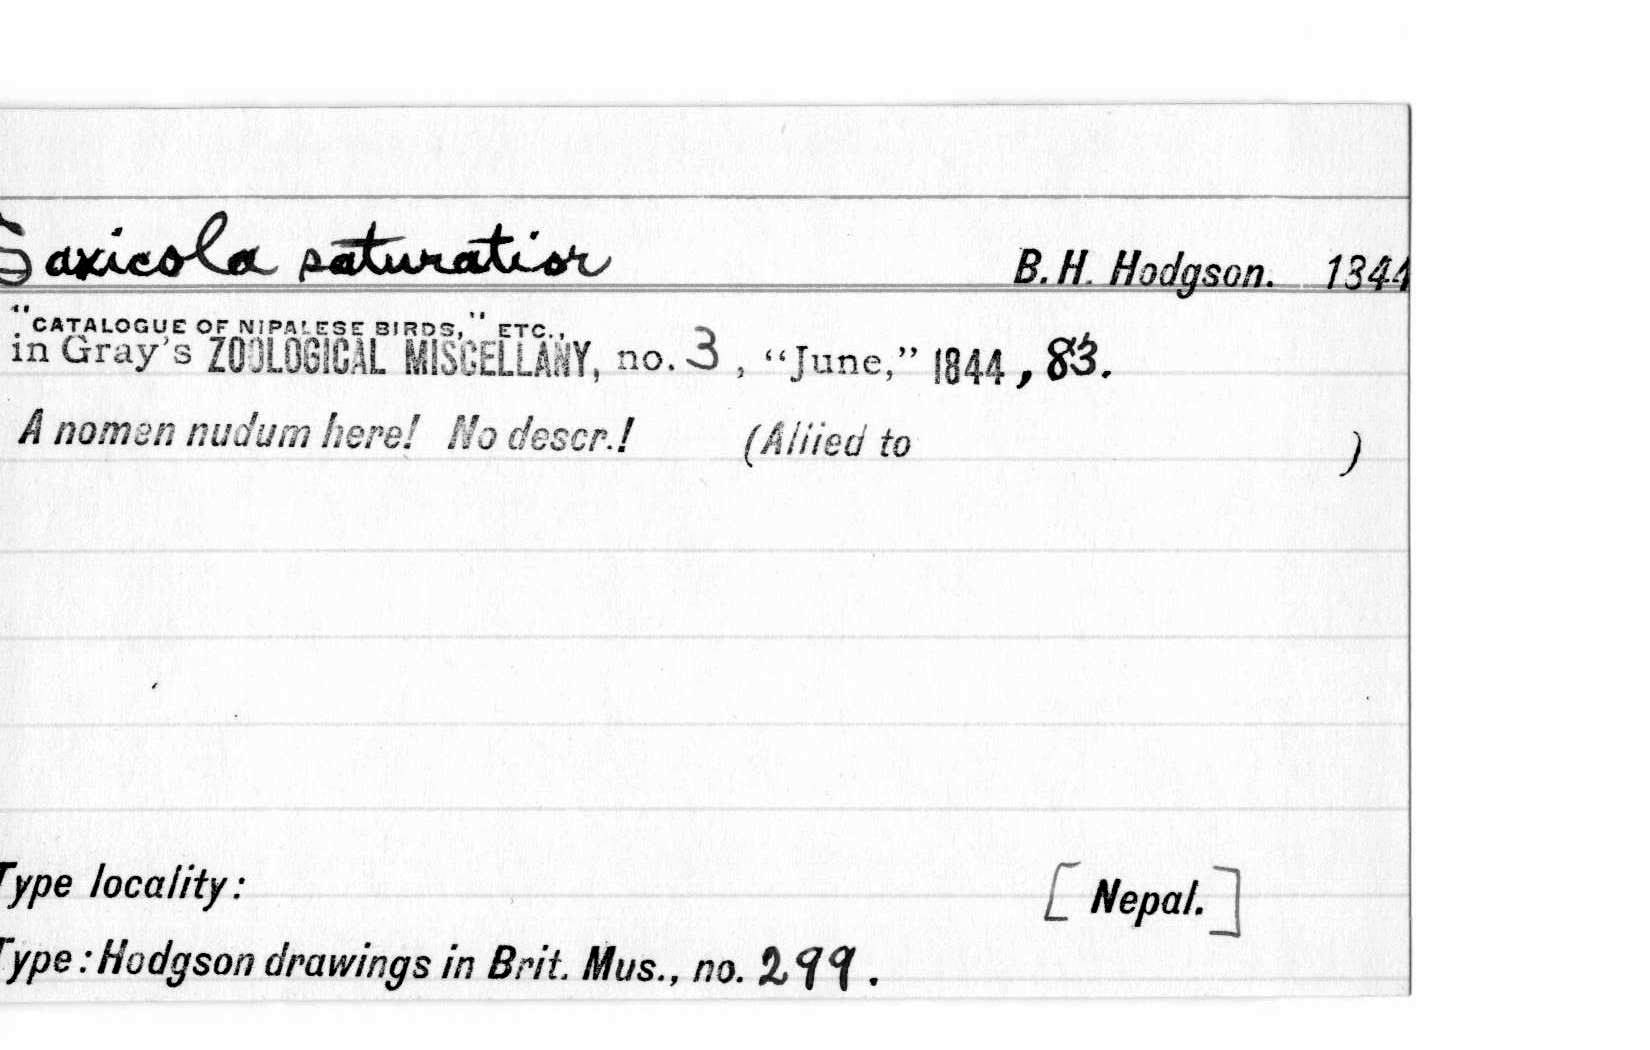 Saxicola saturatior B. H. Hodgson. 1344
"CATALOGUE OF NIPALESE BIRDS," ETC.,
in Gray's ZOOLOGICAL MISCELLANY, no. 3, "June," 1844, 83.
A nomen nudum here! No descr.! (Allied to )
Type locality: [Nepal.]
Type: Hodgson drawings in Brit. Mus., no. 299.